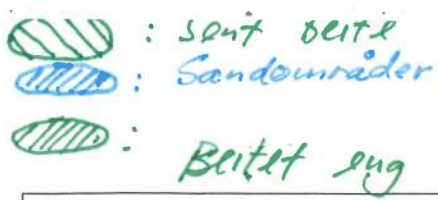 : sent beite
: Sandområder
: Beitet eng